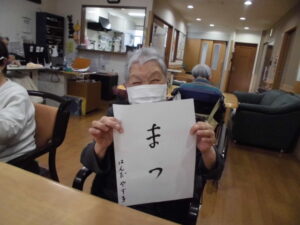 まつ
はんだ やす子